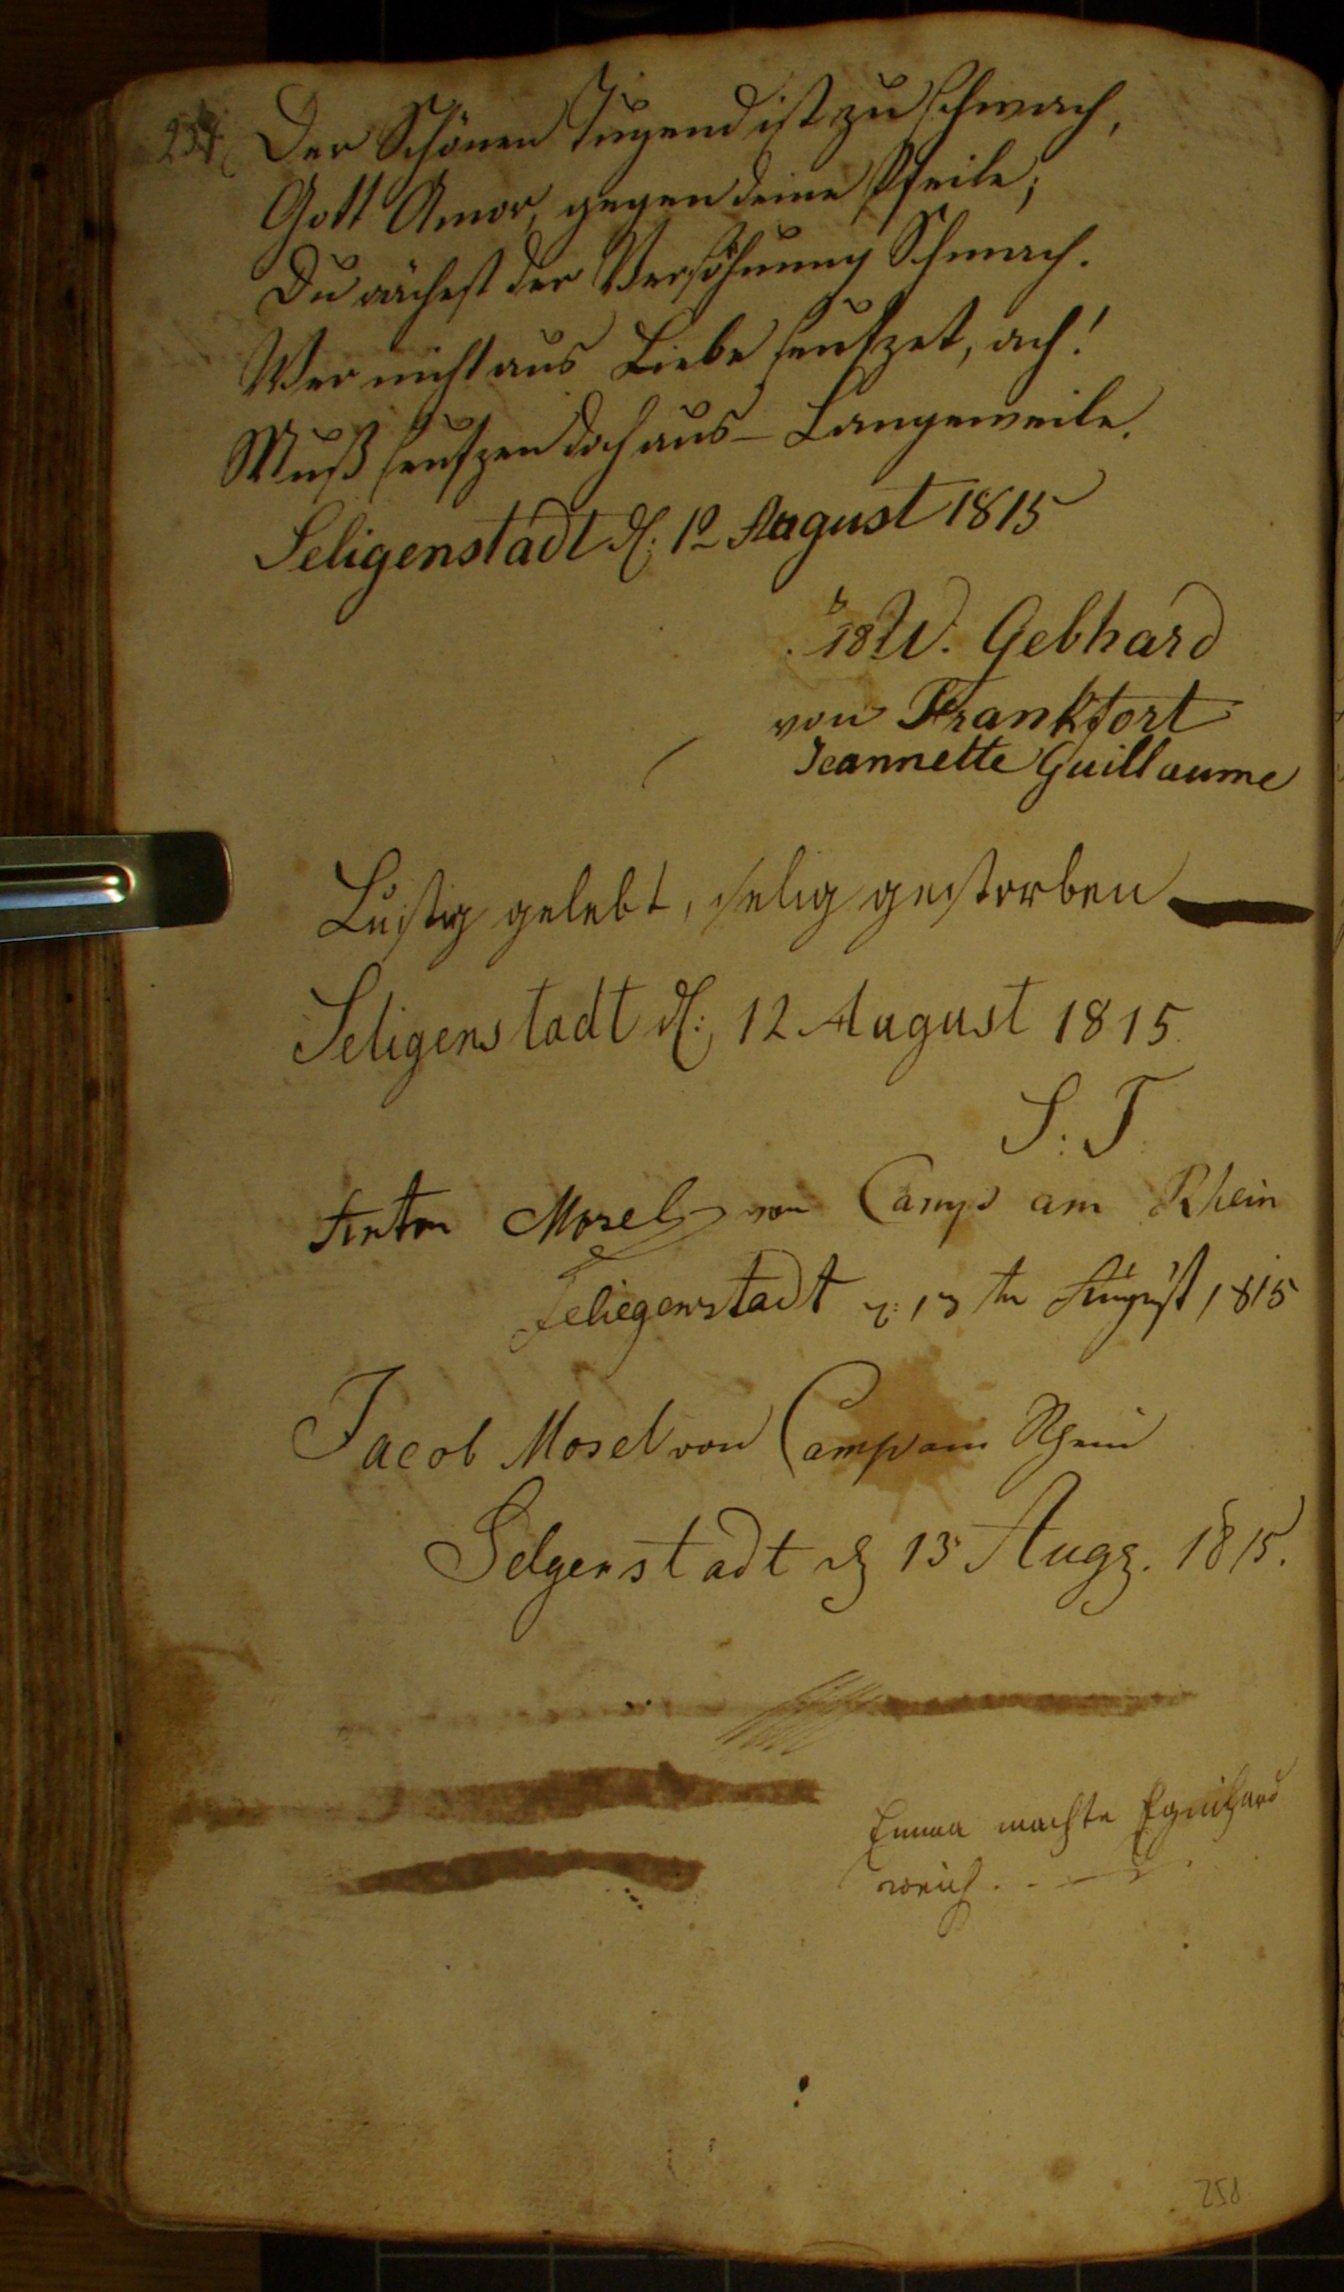 Der Schönen Tugend ist zu schwach,
Gott Amor, gegen deine Pfeile;
Du rächest der Versöhnung Schmach.
Wer nicht aus Liebe seufzet, ach!
Muß seufzen doch aus – Langeweile.
Seligenstadt d: 12 August 1815
W. Gebhard
von Frankfort
Jeannette Guillaume
Lustig gelebt, selig gestorben —
Seligenstadt d: 12 August 1815.
S: T
Anton Mosel von Camp am Rhein
Seliegenstadt d: 13ten August 1815
Jacob Mosel von Camp am Rhein
Selgenstadt d 13 Augg. 1815.
Emma machte Eginhard
weich. . —
258